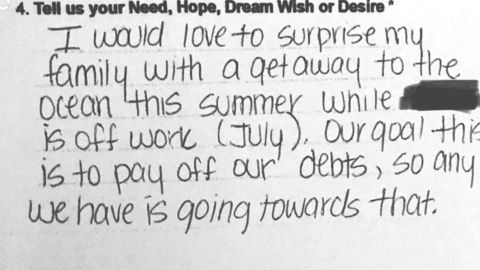 4. Tell us your Need, Hope, Dream Wish or Desire *
I would love to surprise my
family with a getaway to the
ocean this summer while
is off work (July). Our goal this
is to pay off our debts, so any
we have is going towards that.